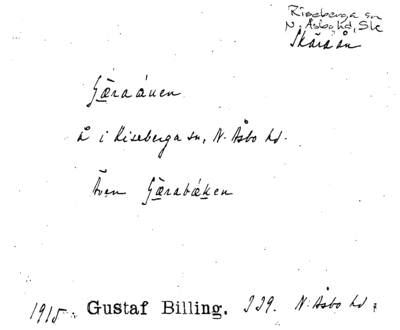 Riseberga sn
N. Åsbo hd, Sk
Skäraån
Gæraáuen
Å i Riseberga sn, N. Åsbo hd.
Även Gærabæken
1915. Gustaf Billing. 229. N. Åsbo hd.